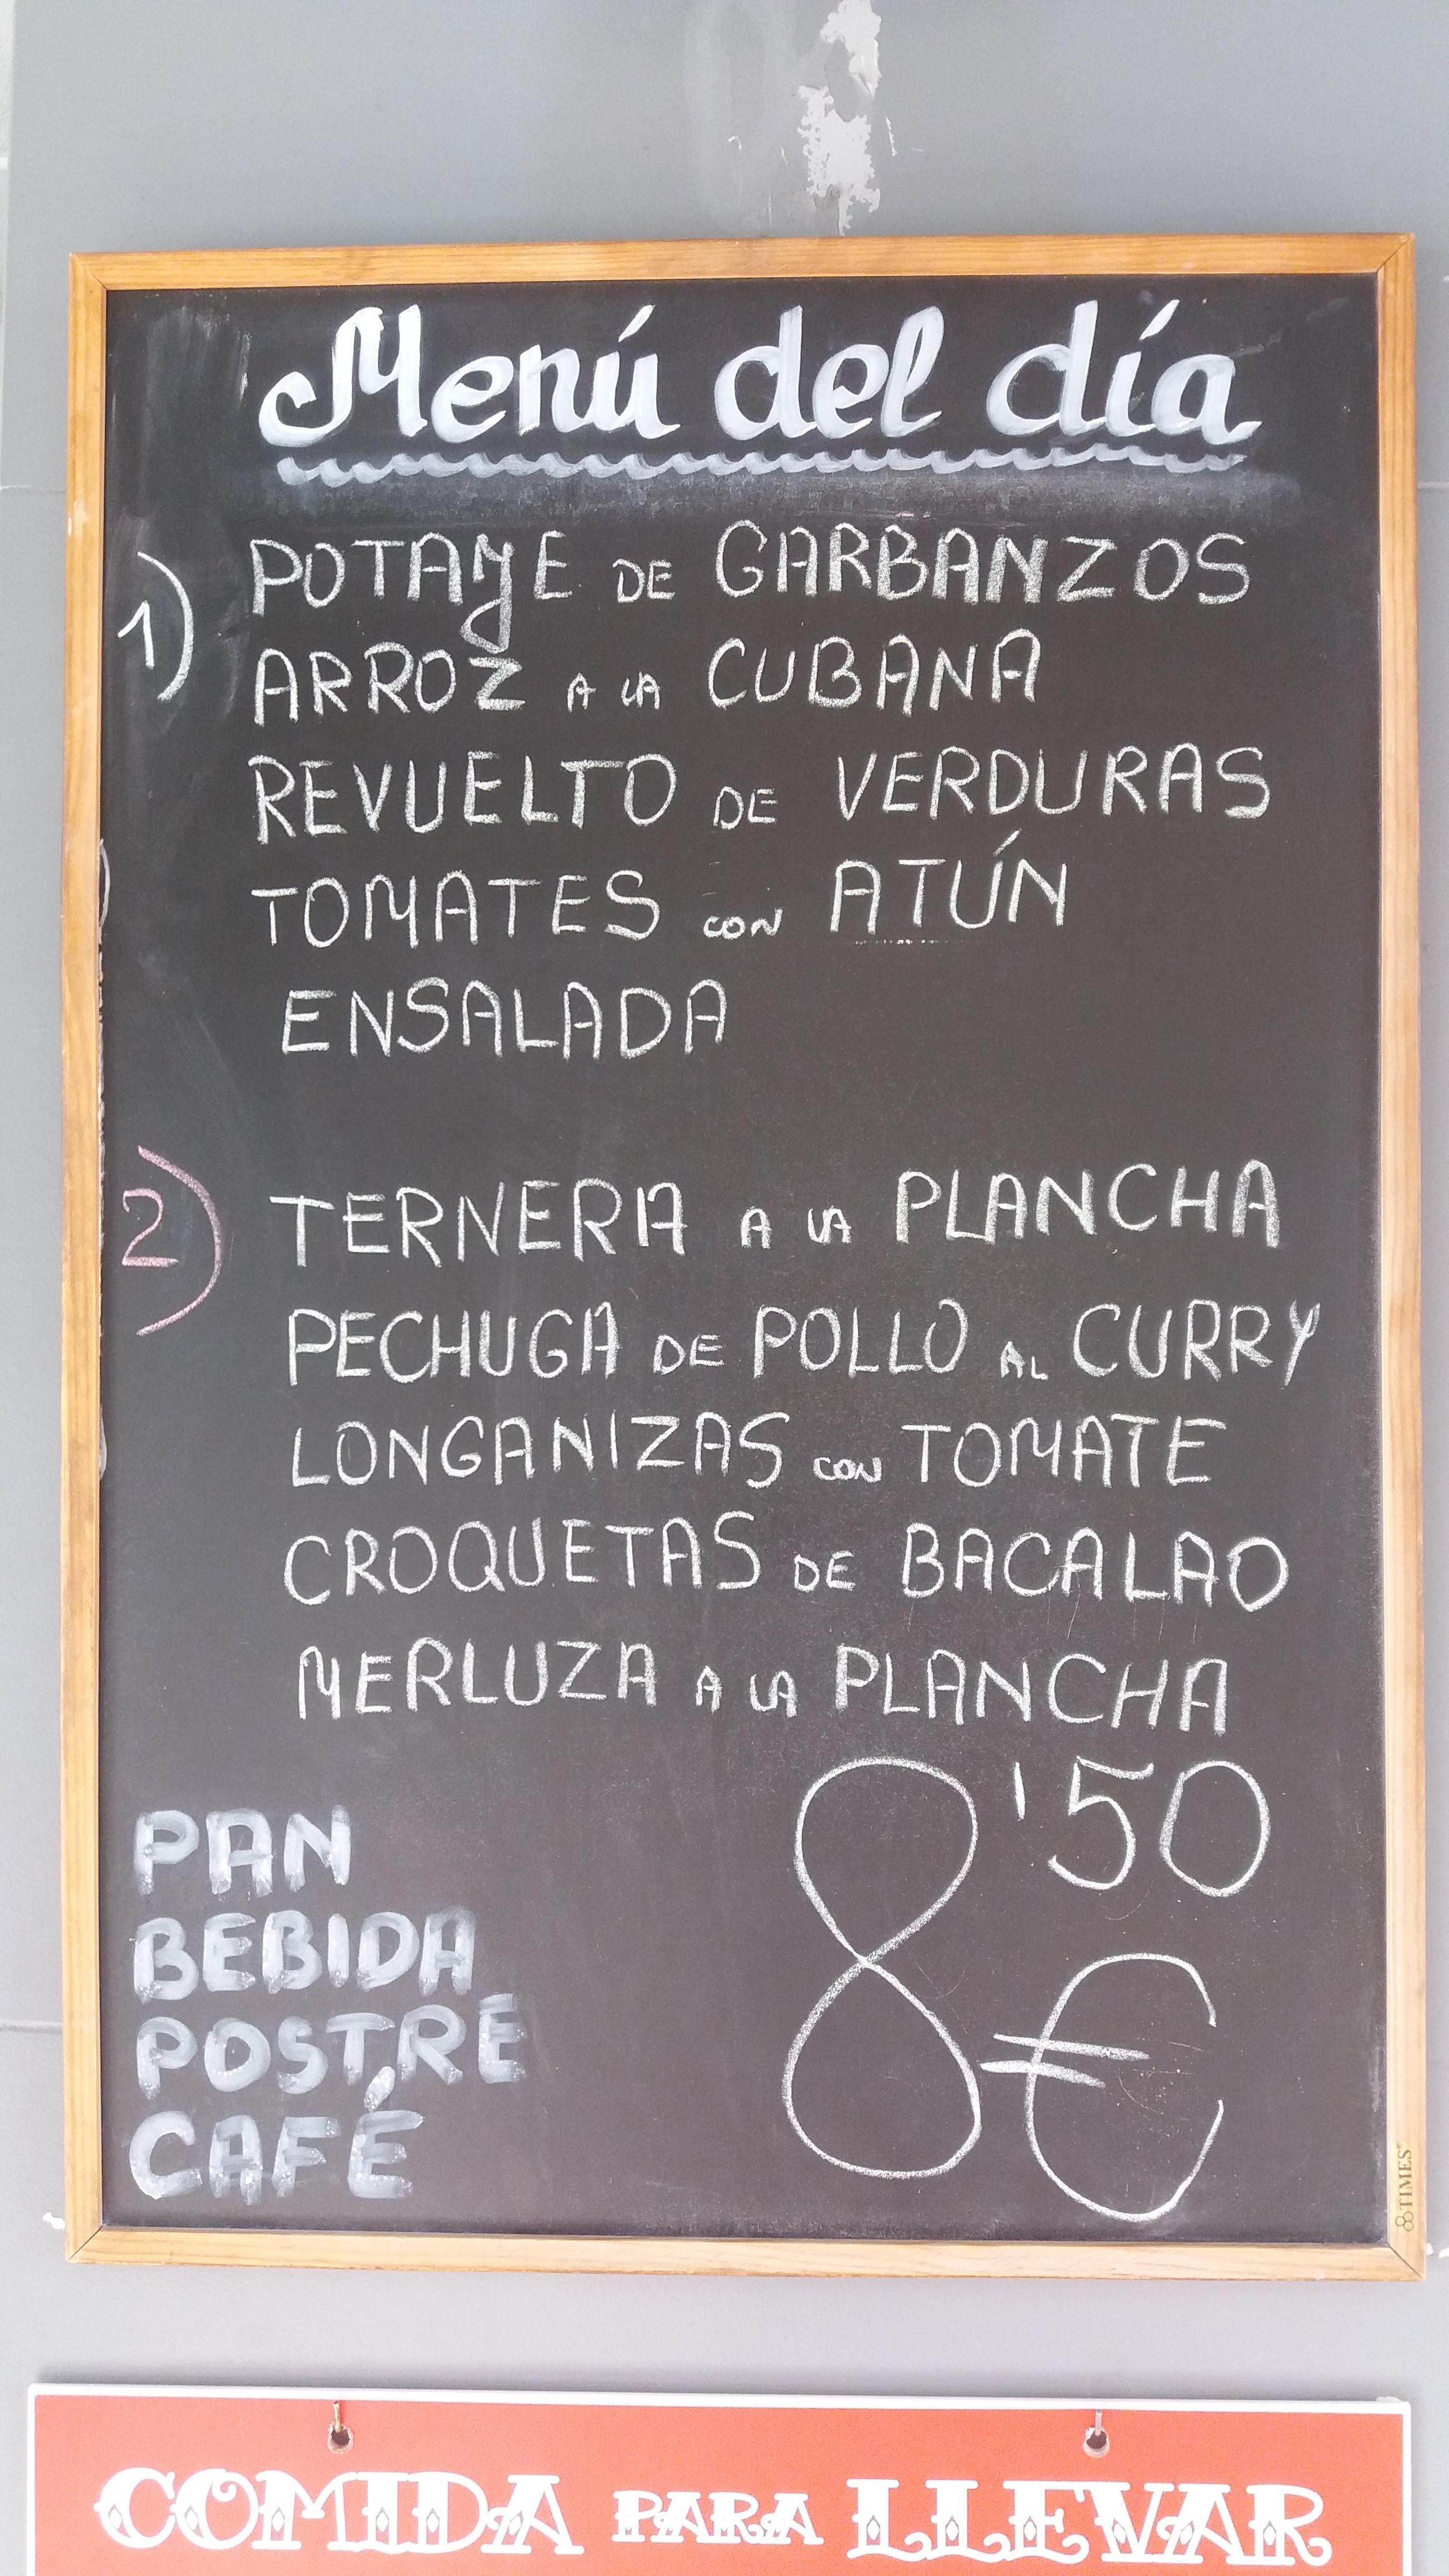 Menú del día
1)
POTAJE DE GARBANZOS
ARROZ A LA CUBANA
REVUELTO DE VERDURAS
TOMATES CON ATÚN
ENSALADA
2)
TERNERA A LA PLANCHA
PECHUGA DE POLLO AL CURRY
LONGANIZAS CON TOMATE
CROQUETAS DE BACALAO
MERLUZA A LA PLANCHA
8'50
€
PAN
BEBIDA
POSTRE
CAFÉ
TIMES
COMIDA PARA LLEVAR